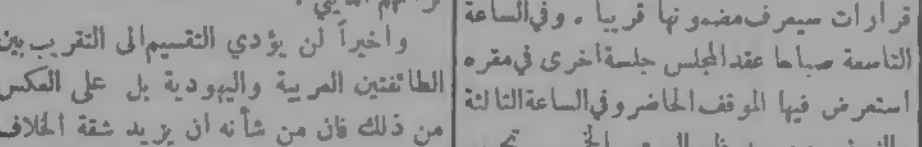 قرارات سيعرف مضمونها قريباً . وفي الساعة
التاسعة صباحا عقد المجلس جلسة اخرى في مقره
استعرض فيها الموقف الحاضر وفي الساعة الثالثة
واخيراً لن يؤدي التقسيم الى التقريب بين
الطائفتين العربية واليهودية بل على العكس
من ذلك فان من شأنه ان يزيد شقة الخلاف